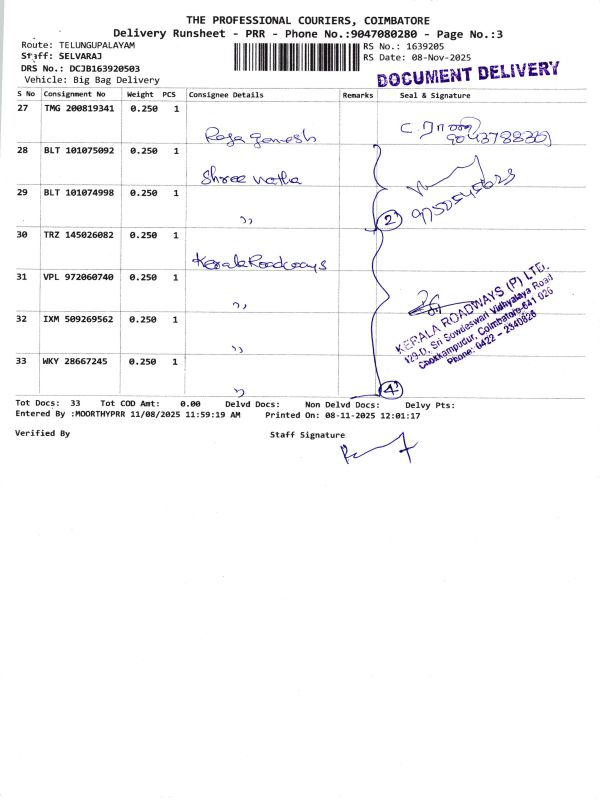 THE PROFESSIONAL COURIERS, COIMBATORE
Delivery Runsheet - PRR - Phone No.:9047080280 - Page No.:3
Route: TELUNGUPALAYAM RS No.: 1639205
Staff: SELVARAJ RS Date: 08-Nov-2025
DRS No.: DCJB163920503
Vehicle: Big Bag Delivery
DOCUMENT DELIVERY
S No Consignment No Weight PCS Consignee Details Remarks Seal & Signature
27 TMG 200819341 0.250 1
Raja Ganesh
28 BLT 101075092 0.250 1
Shree natha
29 BLT 101074998 0.250 1
,, 2
9750545623
30 TRZ 145026082 0.250 1
Kerala Roadways
31 VPL 972060740 0.250 1
,,
KERALA ROADWAYS (P) LTD.
129-D, Sri Sowdeswari Vidhyalaya Road
Chokkampudur, Coimbatore-641 026
Phone: 0422 - 2340826
32 IXM 509269562 0.250 1
,,
33 WKY 28667245 0.250 1
,, 4
Tot Docs: 33 Tot COD Amt: 0.00 Delvd Docs: Non Delvd Docs: Delvy Pts:
Entered By :MOORTHYPRR 11/08/2025 11:59:19 AM Printed On: 08-11-2025 12:01:17
Verified By Staff Signature